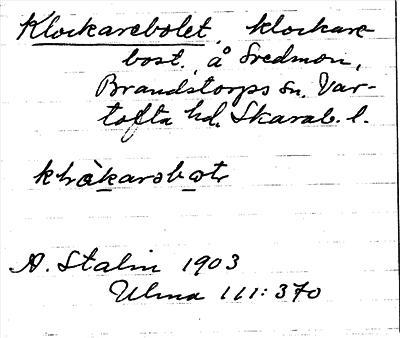 Klockarebolet, klockare-
bost. å Svedmon,
Brandstorps sn. Var-
tofta hd. Skarab. l.
A. Stalin 1903
Ulma 111:370